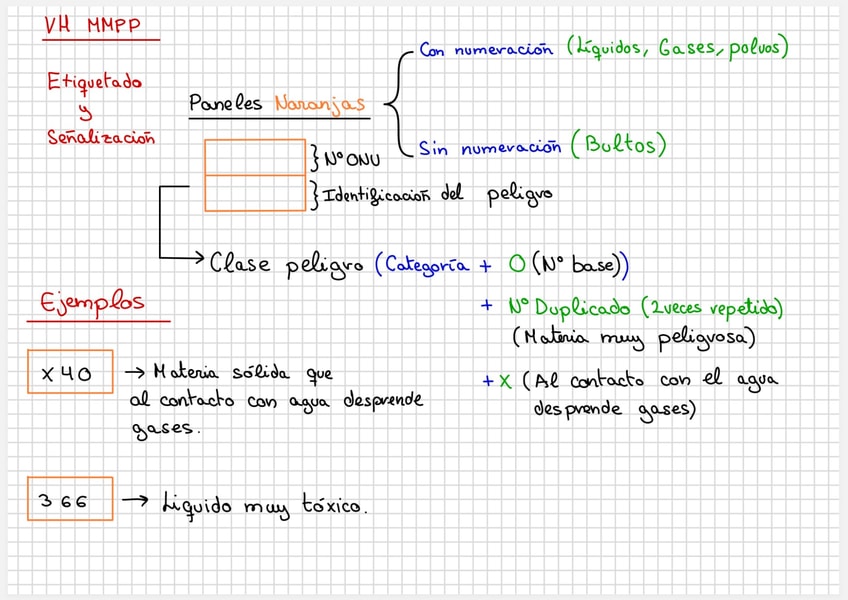 VH MMPP
Etiquetado
y
Señalización
Paneles Naranjas
Con numeración (Líquidos, Gases, polvos)
Sin numeración (Bultos)
} Nº ONU
} Identificación del peligro
→ Clase peligro (Categoría + O (Nº base))
+ Nº Duplicado (2 veces repetido)
(Materia muy peligrosa)
+ X (Al contacto con el agua
desprende gases)
Ejemplos
X 4 0 → Materia sólida que
al contacto con agua desprende
gases.
3 6 6 → Líquido muy tóxico.